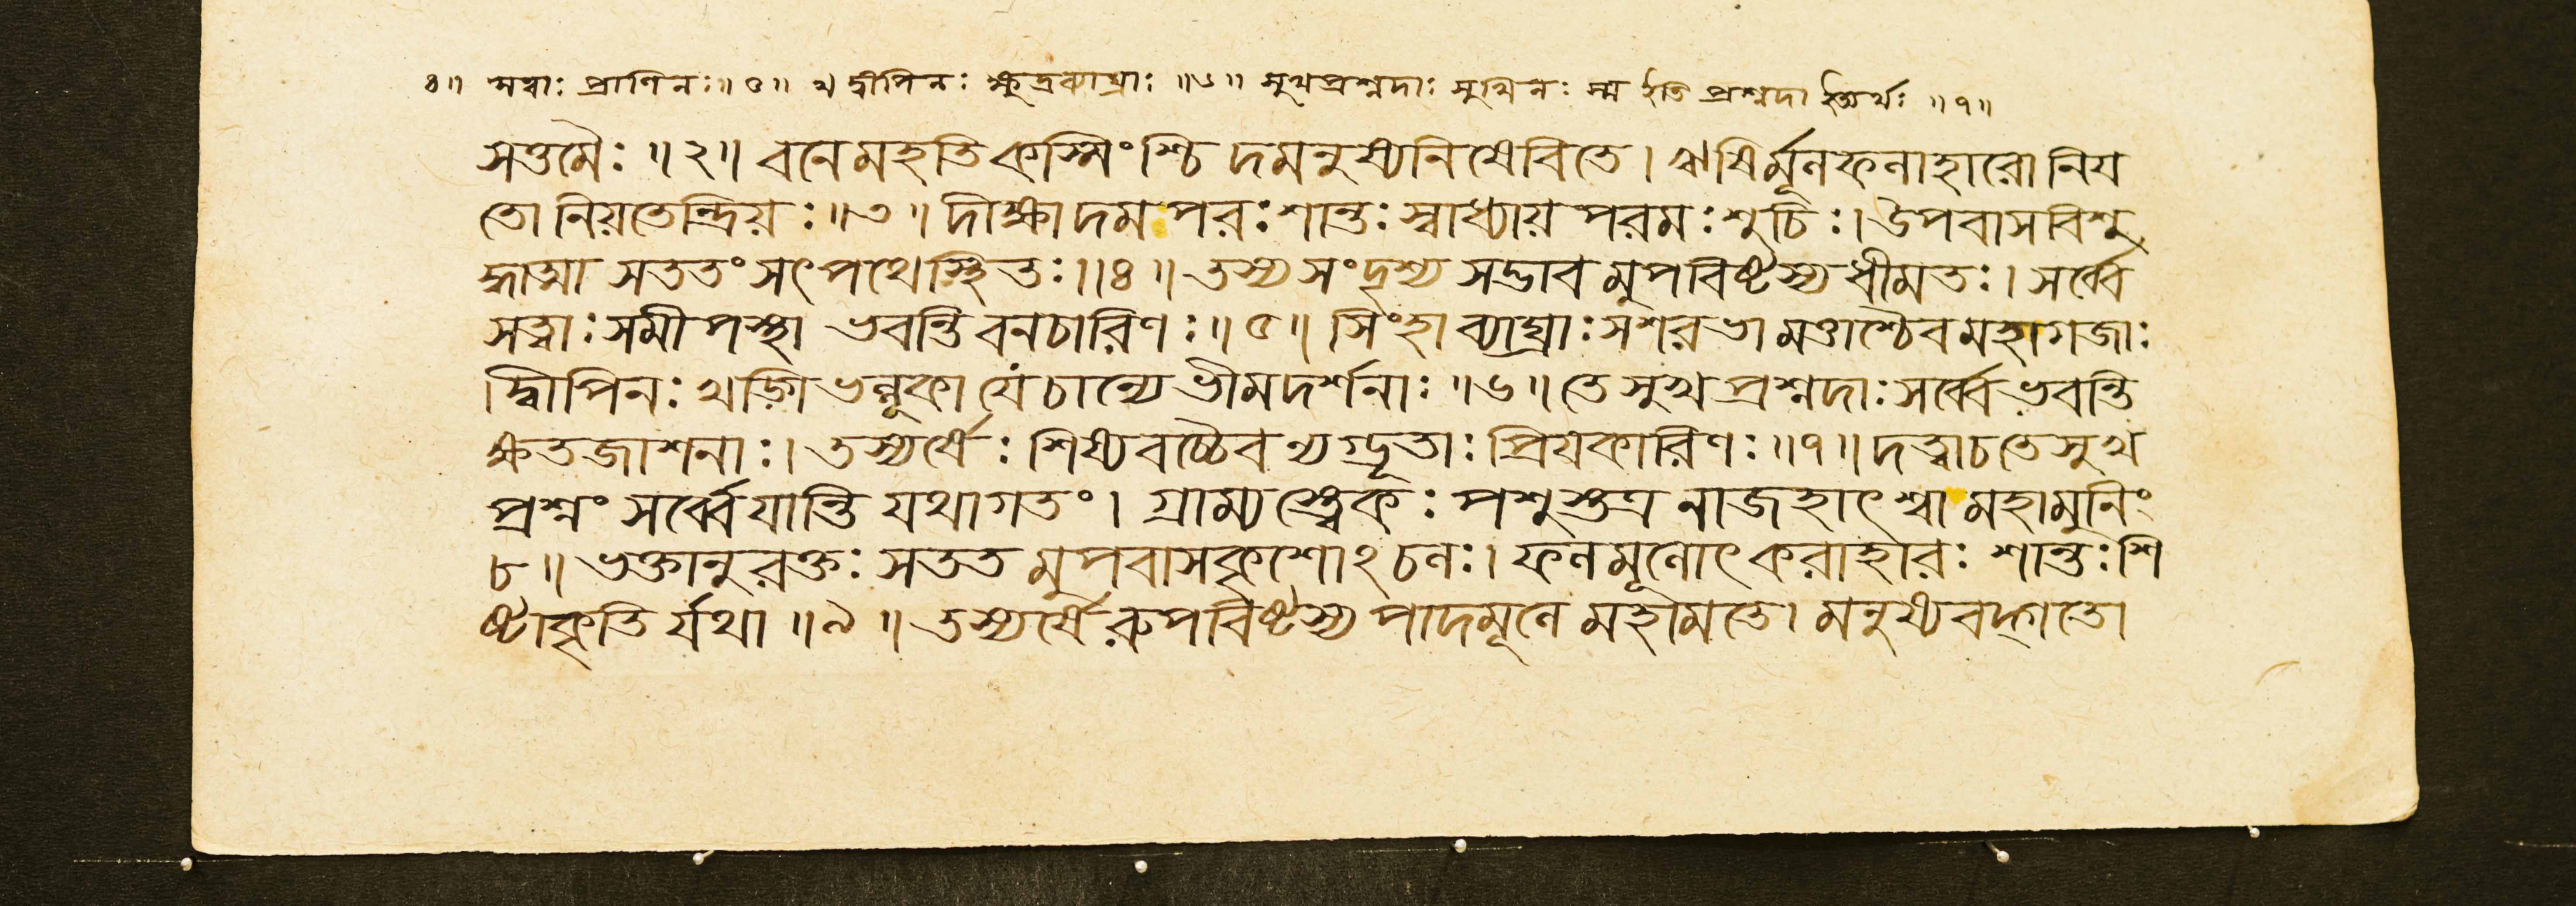 ৪॥ সত্বাঃ প্রাণিনঃ॥৫॥ খ দ্বীপিনঃ ক্ষুদ্রব্যাঘ্রাঃ ॥৬॥ সুখপ্রশ্নদাঃ সুখিনঃ স্ম ইতি প্রশ্নদা ইত্যর্থঃ ॥৭॥
সত্তমৈঃ ॥২॥ বনে মহতি কস্মিংশ্চি দমনুষ্যনিষেবিতে। ঋষির্মূলফলাহারো নিয
তো নিয়তেন্দ্রিয়ঃ ॥৩॥ দীক্ষাদম পরঃ শান্তঃ স্বাধ্যায় পরমঃ শুচিঃ। উপবাস বিশু
দ্ধাত্মা সততং সৎপথে স্থিতঃ ॥৪॥ তস্য সংদৃশ্য সদ্ভাব মুপবিষ্টস্য ধীমতঃ। সর্ব্বে
সত্বাঃ সমীপস্থা ভবন্তি বনচারিণঃ ॥৫॥ সিংহা ব্যাঘ্রাঃ সশরভা মত্তাশ্চৈব মহাগজাঃ
।দ্বীপিনঃ খড়্গি ভল্লূকা যে চান্যে ভীমদর্শনাঃ ॥৬॥ তে সুখ প্রশ্নদাঃ সর্ব্বে ভবন্তি
ক্ষতজাশনাঃ। তস্যর্ষেঃ শিষ্যবচ্চৈব ন্যগ্ভূতাঃ প্রিয়কারিণঃ ॥৭॥ দত্বাচ তে সুখ
প্রশ্নং সর্ব্বে যান্তি যথাগতং। গ্রাম্য স্ত্বেকঃ পশুস্তত্র নাজহাৎ শ্বা মহামুনিং
৮॥ ভক্তানুরক্তঃ সতত মুপবাসকৃশোঽ চলঃ। ফলমূলোৎকরাহারঃ শান্তঃ শি
ষ্টাকৃতি র্যথা ॥৯॥ তস্যর্ষে রুপবিষ্টস্য পাদমূলে মহামতে। মনুষ্য বদ্গতো